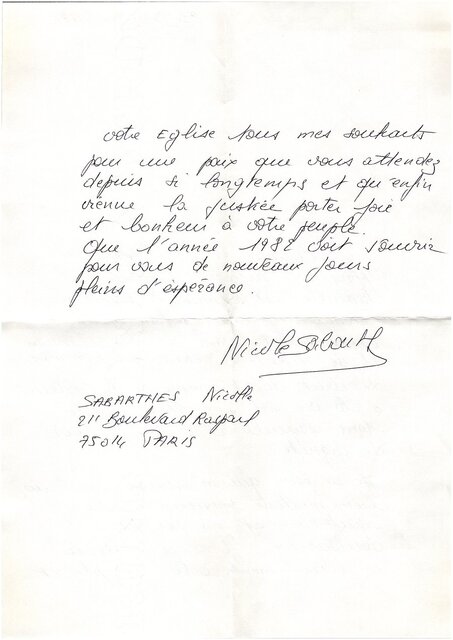 votre Eglise tous mes souhaits
pour une paix que vous attendez
depuis si longtemps et qu'enfin
vienne la justice porter joie
et bonheur à votre peuple.
Que l'année 1982 doit s'ouvrir
pour vous de nouveaux jours
pleins d'espérance.
Nicole Sabarthes
SABARTHES Nicole
211 Boulevard Raspail
75014 PARIS